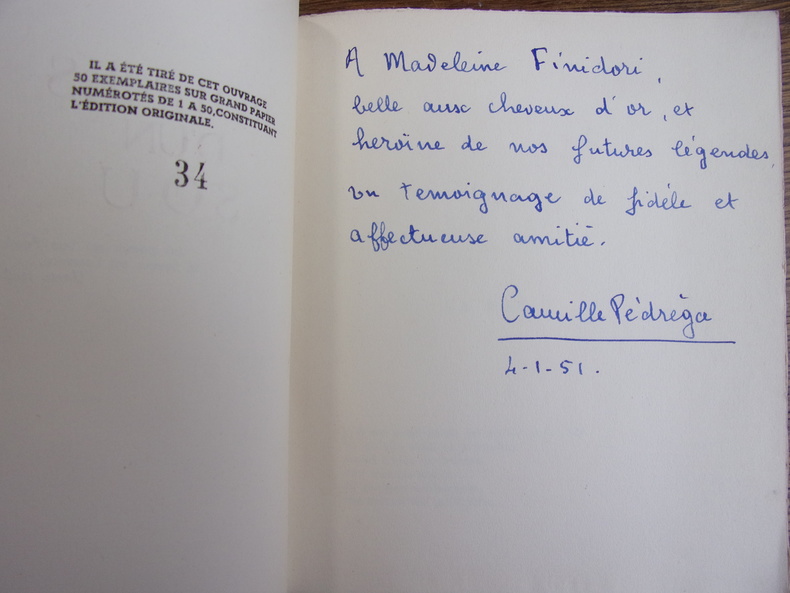 IL A ÉTÉ TIRÉ DE CET OUVRAGE
50 EXEMPLAIRES SUR GRAND PAPIER
NUMÉROTÉS DE 1 A 50, CONSTITUANT
L'ÉDITION ORIGINALE.
34
A Madeleine Finidori,
belle aux cheveux d'or, et
heroïne de nos futures légendes,
un temoignage de fidèle et
affectueuse amitié.
Camille Pédréga
4-1-51.